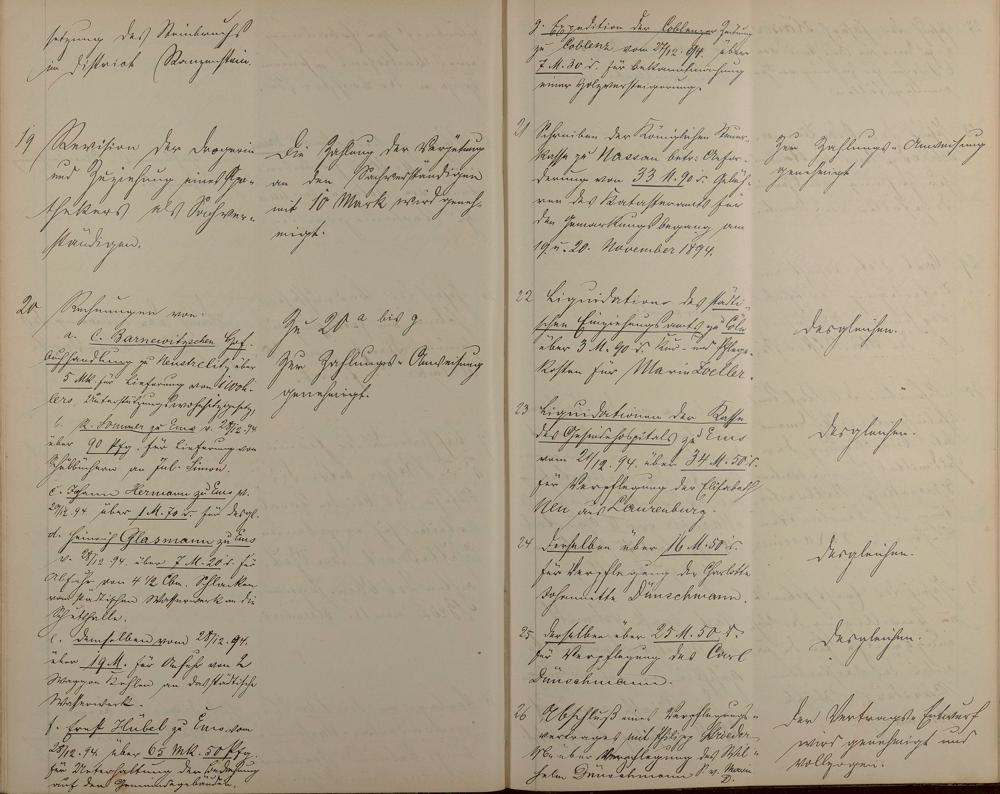 setzung des Steinbruchs
im District
19
Revision der Drogerie
und Zuziehung eines Apo-
thekers als Sachver-
ständigen.
Die Zahlung der Vergütung
an den Sachverständigen
mit 10 Mark wird geneh-
migt.
20
Rechnungen von:
a. C. Barnewitzschen Hof-
buchhandlung zu Neustrelitz über
5 Mk. für Lieferung von
Unterstützungswohnsitzgesetz,
b. Sommer zu Ems v. 28/12. 94
über 90 Pfg. für Lieferung von
Schulbüchern an Jul. Simon.
c. Johann Hermann zu Ems v.
29/12. 94 über 1 M. 70 d. für desgl.
d. Heinrich Glasmann zu Ems
v. 28/12. 94. über 7 M. 20 d. für
Abfuhr von 4 1/2 Cbm. Schlacken
vom städtischen Wasserwerk an die
Schutthalle.
e. demselben vom 28/12. 94.
über 19 M. für Anfuhr von
Waggon Kohlen an das städtische
Wasserwerk.
f. Ernst Hübel zu Ems vom
28/12. 94 über 65 Mk. 50 Pfg.
für Unterhaltung der Bedachung
auf den Gemeindegebäuden.
Zu 20 a bis g
Zur Zahlungs-Anweisung
genehmigt.
g. Expedition der Coblenzer Zeitung
zu Coblenz vom 27/12. 94 über
7 M. 30 d. für Bekanntmachung
einer Holzversteigerung.
21
Schreiben der Königlichen Steuer-
kasse zu Nassau betr: Anfor-
derung von 33 M. 90 d. Gebüh-
ren des Katasteramts für
den Gemarkungsbegang am
19. u. 20. November 1894.
Zur Zahlungs-Anweisung
genehmigt
22
Liquidations des städti-
schen Einziehungsamts zu Cöln
über 3 M. 90 d. Kur- und Pflege-
kosten für Maria Loeller.
desgleichen.
23
Liquidationen der Kasse
des Gemeindehospitals zu Ems
vom 21/12. 94. über 34 M. 50 d.
für Verpflegung der Elisabeth
Neu aus Laurenburg.
desgleichen.
24
Derselben über 16 M. 50 d.
für Verpflegung der Charlotte
Johannette Dünschmann.
desgleichen.
25
Derselben über 25 M. 50 d.
für Verpflegung des Carl
Dünschmann.
desgleichen.
26
Abschluß eines Verpflegungs-
vertrages mit Philipp
über Verpflegung des Wil-
helm Dünschmann
Der Vertrags-Entwurf
wird genehmigt und
vollzogen.